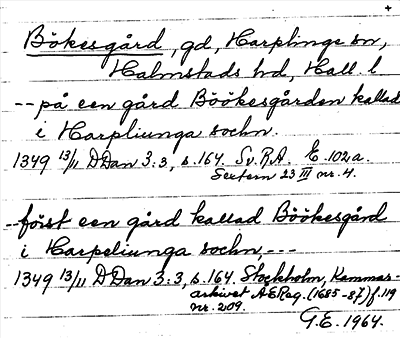 +
Bökesgård, gd, Harplinge sn,
Halmstads hd, Hall. l.
-- på een gårdBöökesgården kallad
i Harpliunga sochn.
1349 13/11 DDan 3:3, s. 164. Sv. R.A. E. 102a.
Sextern 23 III nr. 4.
-- först een gård kallad Böökesgård
i Harpeliunga sochn, ---
1349 13/11 DDan 3:3, s. 164. Stockholm, Kammar-
arkivet AEReg. (1685-87) f. 119
nr. 209.
G.E. 1964.